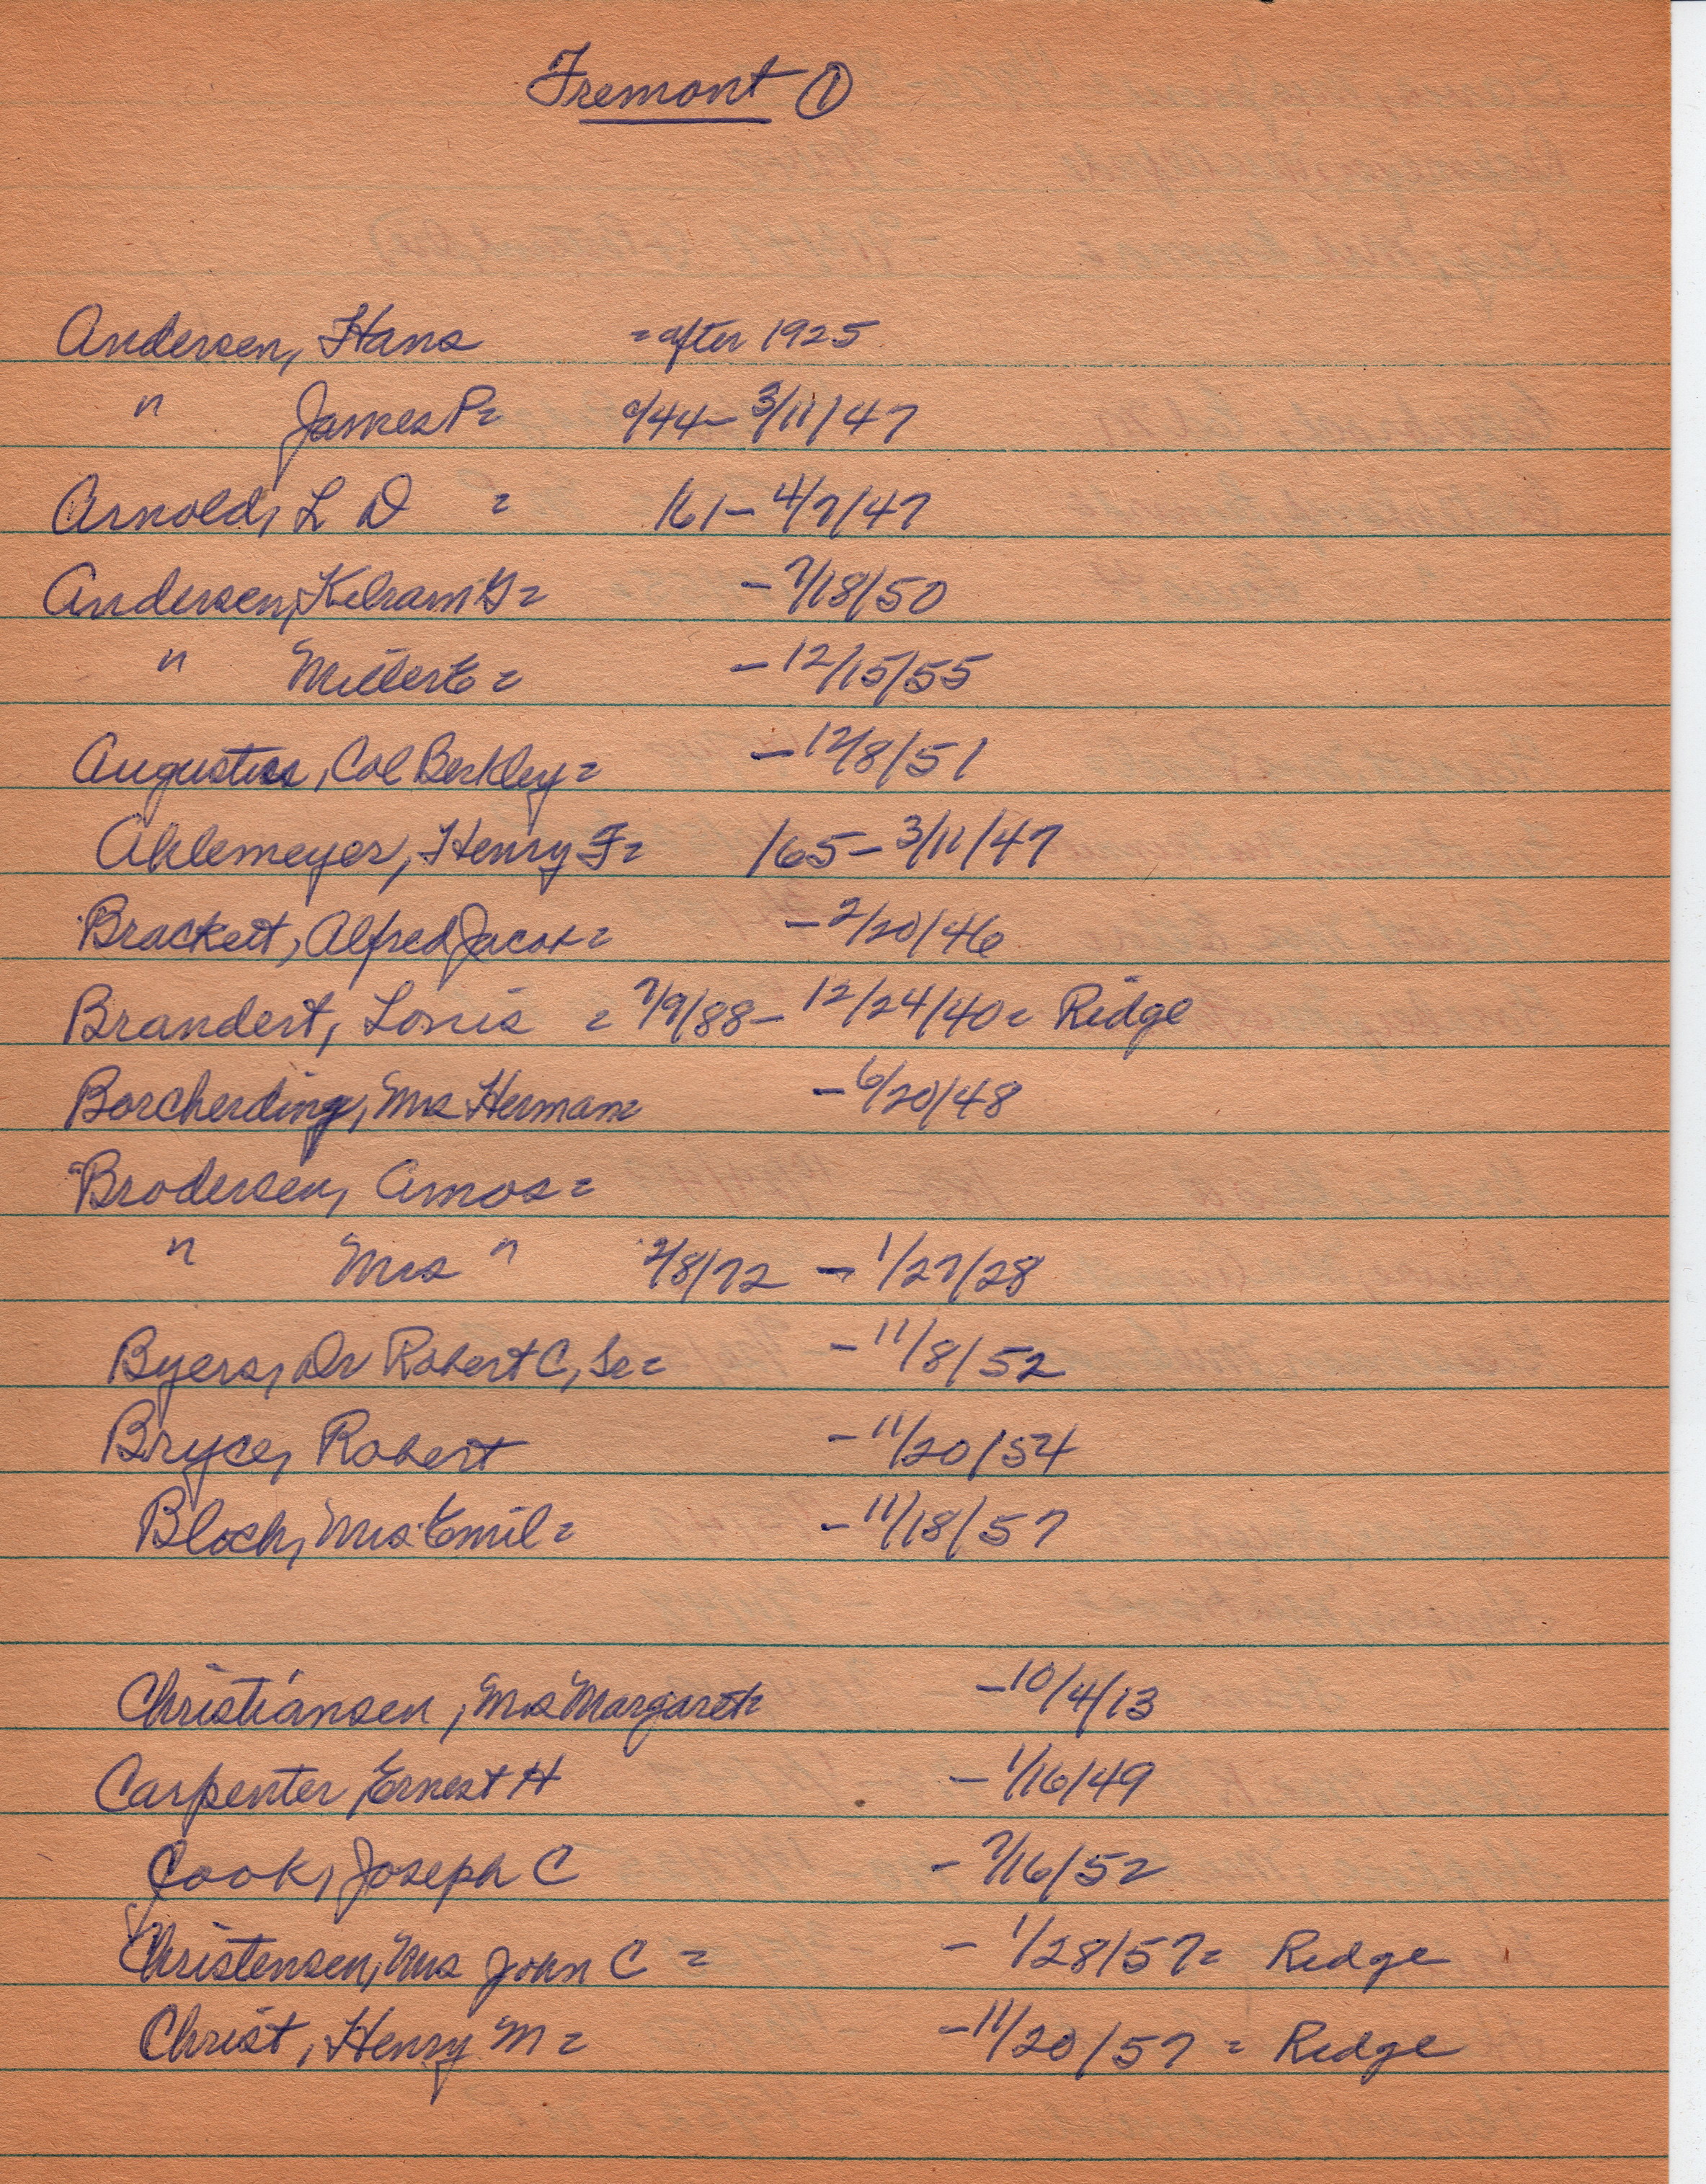 Fremont ①
Andersen, Hans = after 1925
" James P = /44 – 3/11/47
Arnold, L D = /61 – 4/7/47
Andersen, G = – 7/18/50
" Miller E = – 12/15/55
Augustus, Col Berkley = – 12/8/51
Ahlemeyer, Henry F = /65 – 3/11/47
Brackett, Alfred Jacob = – 2/20/46
Brandert, Louis = 7/9/88 – 12/24/40 = Ridge
Borcherding, Mrs Herman = – 6/20/48
Brodersen, Amos =
" Mrs " 2/8/72 – 1/27/28
Byers, Dr Robert C, Sr = – 11/8/52
Bryce, Robert – 11/20/54
Bloch, Mrs Emil = – 11/18/57
Christiansen, Mrs Margaret = – 10/4/13
Carpenter, Ernest H – 1/16/49
Cook, Joseph C – 7/16/52
Christensen, Mrs John C = – 1/28/57 = Ridge
Christ, Henry M = – 11/20/57 = Ridge